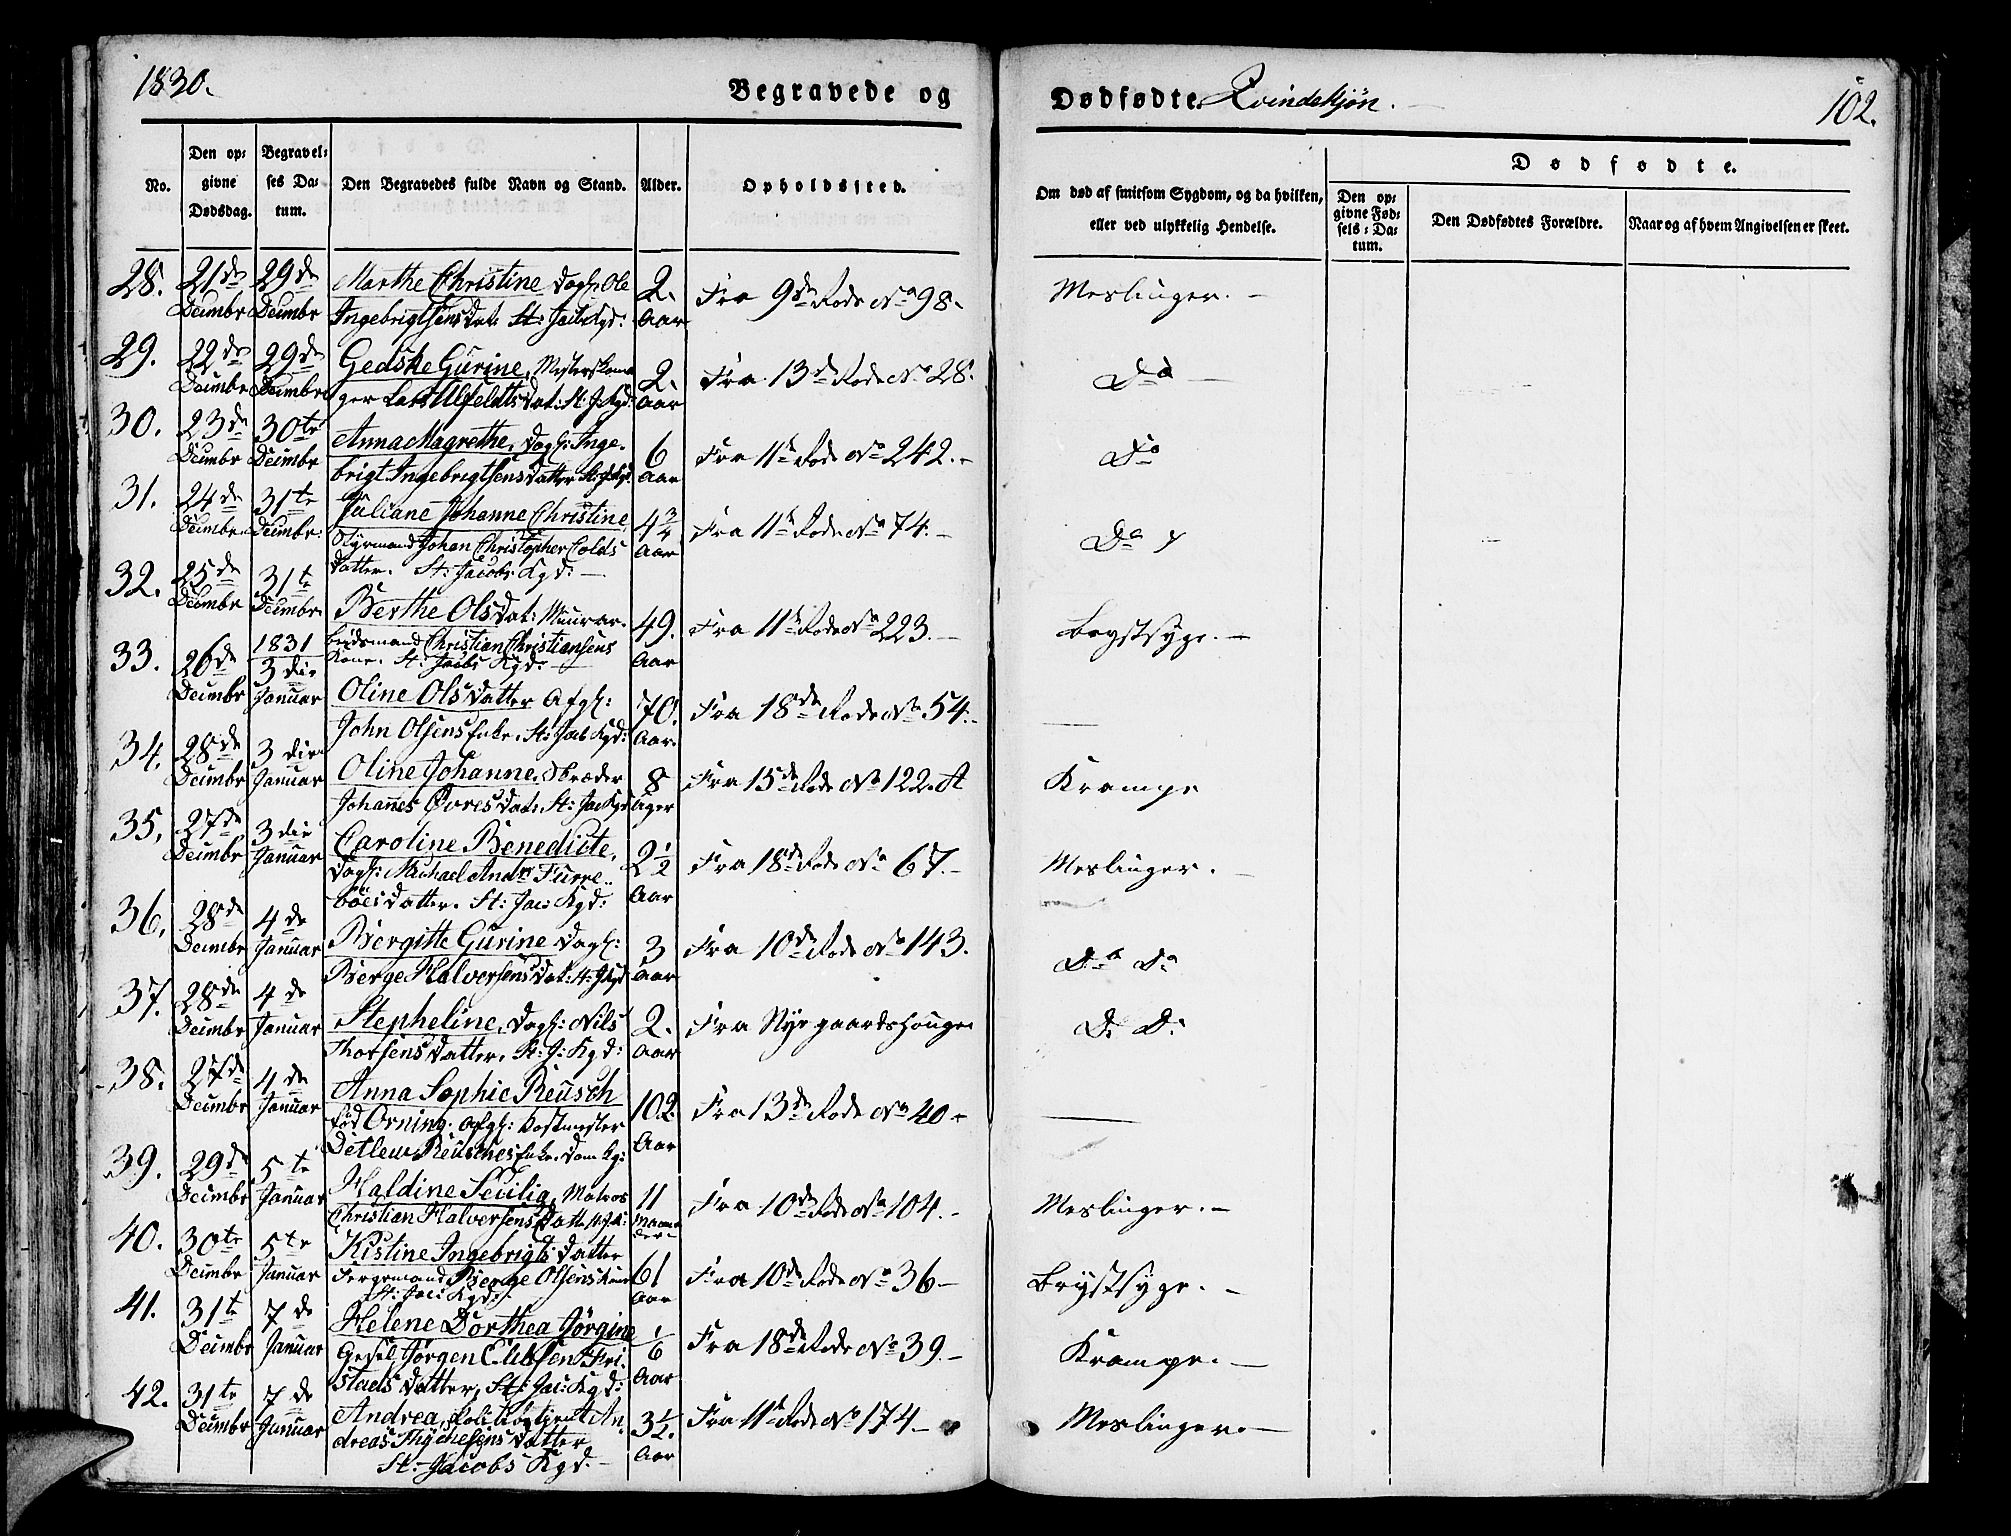 1830.
Begravede og
Dødfødte. Qvindekjøn.
102.
No.
Den op-
givne
Dødsdag.
Begravel-
ses Da-
tum.
Den Begravedes fulde Navn og Stand.
Alder.
Opholdssted.
Om død af smitsom Sygdom, og da hvilken,
eller ved ulykkelig Hendelse.
Dødfødte.
Den op-
givne Fød-
sels-Da-
tum.
Den Dødfødtes Forældre.
Naar og af hvem Angivelsen er skeet.
28. 21de 29de Marthe Christine Dagl: Ole 2. Fra 9de Rode No 98. Meslinger.
Decembr Decembr Ingebrigtsens Dat: St: Jacb Kgd: Aar
29. 22de 29de Gedske Gurine, 2. Fra 13de Rode No 28. Do
Decembr Decembr Ulfeldts Dat: St: J: Kgd: Aar
30. 23de 30te Anna Magrethe, Dagl: Inge- 6 Fra 11te Rode No 242. Do
Decembr Decembr brigt Ingebrigtsens Datter St: J: Kgd: Aar
31. 24de 31te Juliane Johanne Christine, 4 3/4 Fra 11te Rode No 74. Do
Decembr Decembr: Styrmand Johan Christopher Colds Aar
Datter. St: Jacobs Kgd:
32. 25de 31te Berthe Olsdat: Muurar- 49. Fra 11te Rode No 223. Brystsyge.
Decembr Decembr beidsmand Christian Christiansens Aar
Kone. St: Jacbs Kgd:
33. 26de 1831 3die Oline Olsdatter Afgl: 70. Fra 18de Rode No 54.
Decembr Januar John Olsens Enke. St: Jacb Kgd: Aar.
34. 28de 3die Oline Johanne, Stræder 8 Fra 15de Rode No 122. A Krampe
Decembr Januar Johannes Øvres Dat: St: Jac Kgd Uger
35. 27de 3die Caroline Benedicte, 2 1/2 Fra 18de Rode No 67. Meslinger.
Decembr Januar Dagl: Michael Andr: Furre- Aar
böes Datter. St: Jac: Kgd:
36. 28de 4de Bergitte Gurine Dagl: 3 Fra 10de Rode No 143. Do Do
Decembr Januar Berge Halversens Dat: St: J: Kgd Aar
37. 28de 4de Stepheline, Dagl: Nils 2. Fra Nyegaardshougen Do Do
Decembr Januar Thorsens Datter. St: J: Kgd: Aar
38. 27de 4de Anna Sophie Reusch 102 Fra 13de Rode No 40
Decembr Januar föd Örning. Afgl: Postmester Aar
Detlew Reusches Enke. Dom Kg:
39. 29de 5te Haldine Secilia, Matros 11 Fra 10de Rode No 104. Meslinger.
Decembr Januar Christian Halversens Datt: St: J: K: Maane-
der
40. 30te 5te Kistine Ingebrigts Datter 61 Fra 10de Rode No 36 Brystsyge.
Decembr Januar Færgemand Berge Olsens Kone Aar
St: Jac: Kgd:
41. 31te 7de Helene Dorthea Jørgine 1/6 Fra 18de Rode No 39. Krampe.
Decembr Januar Gesel Jørgen Fri- Aar
stads Datter, St: Jac: Kgd:
42. 31te 7de Andrea, Politibetjent An- 3 1/2. Fra 11te Rode No 174 Meslinger.
Decembr Januar dreas Thychesens Datter Aar
St: Jacobs Kgd.